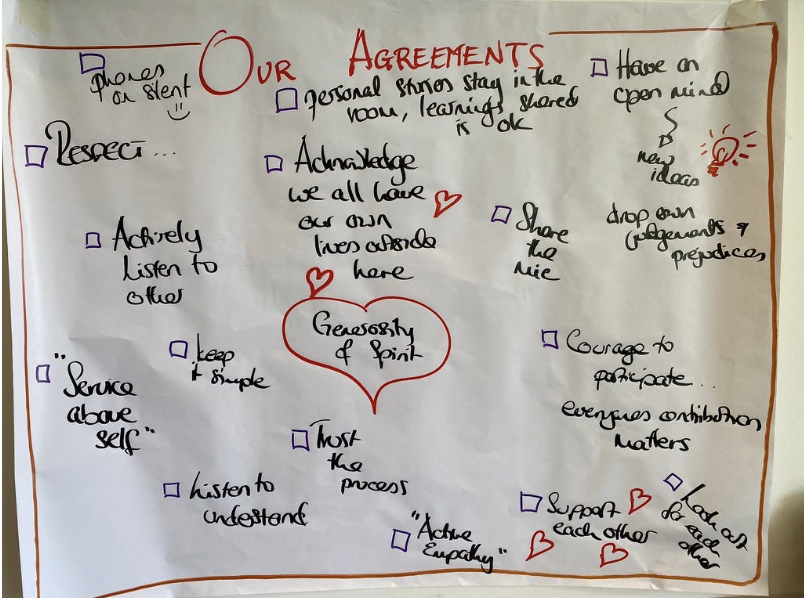 OUR AGREEMENTS
phones
on silent
personal stories stay in the
room, learnings shared
is ok
Have an
open mind
new
ideas
drop own
judgements &
prejudices
Respect...
Acknowledge
we all have
our own
lives outside
here
Share
the
mic
Actively
Listen to
other
Generosity
of Spirit
keep
it simple
Courage to
participate...
everyones contribution
matters
"Service
above
self"
Trust
the
process
Listen to
understand
"Active
Empathy"
Support
each other
Look out
for each
other